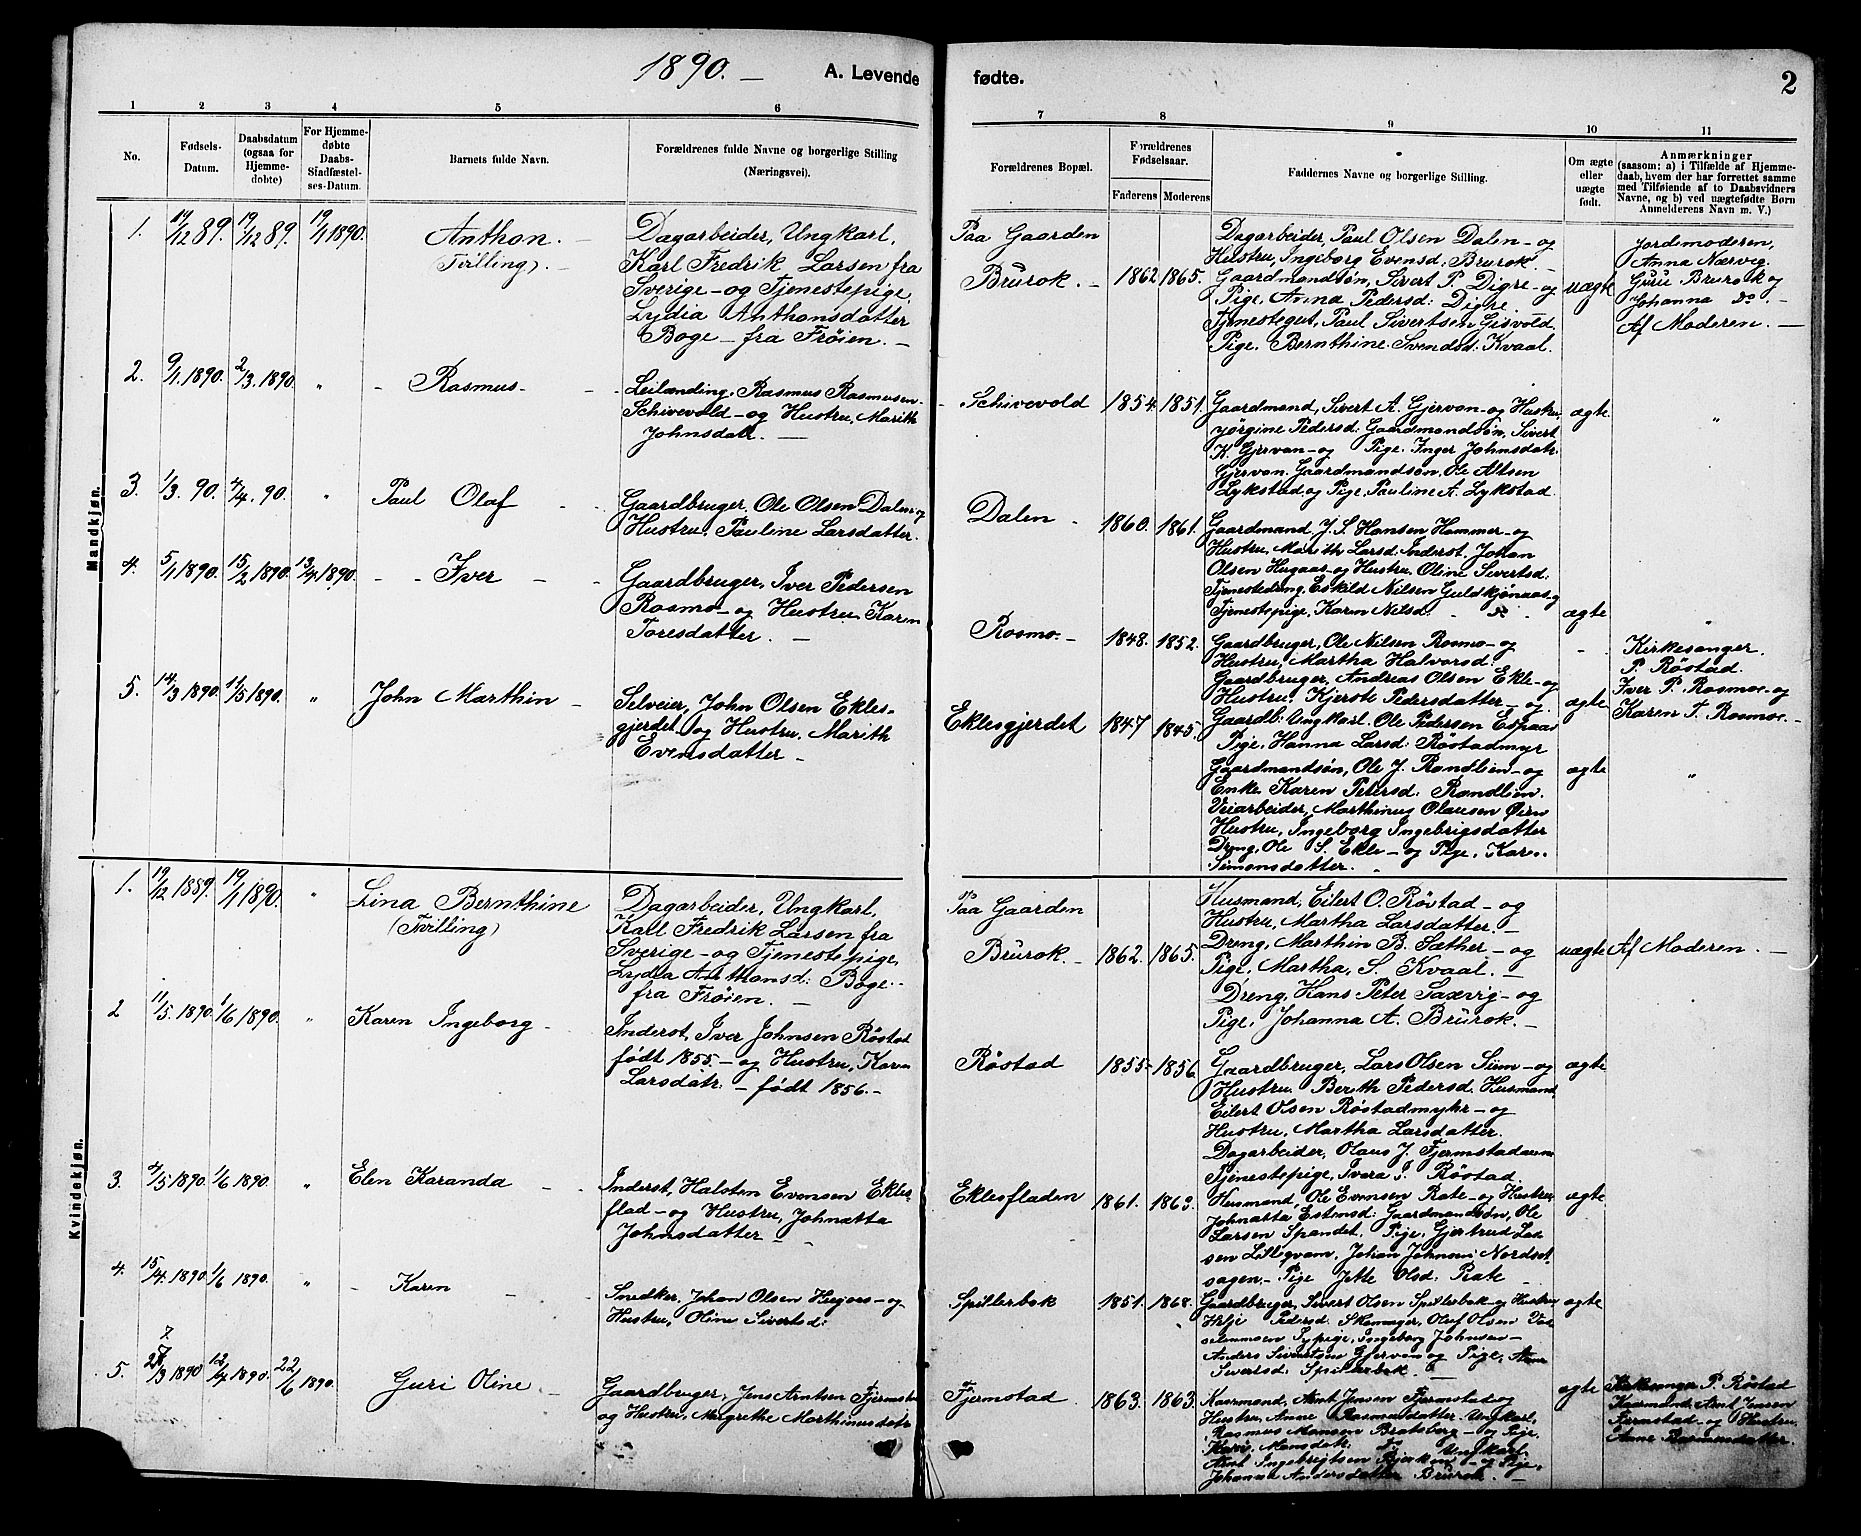 1890. — A. Levende fødte. 2
1 2 3 4 5 6 7 8 9 10 11
No.
Fødsels-
Datum.
Daabsdatum
(ogsaa for
Hjemme-
døbte)
For Hjemme-
døbte
Daabs-
Stadfæstel-
ses-Datum.
Barnets fulde Navn.
Forældrenes fulde Navne og borgerlige Stilling
(Næringsvei).
Forældrenes Bopæl.
Forældrenes
Fødselsaar.
Faderens Moderens
Faddernes Navne og borgerlige Stilling.
Om ægte
eller
uægte
født.
Anmærkninger
(saasom: a) i Tilfælde af Hjemme-
daab, hvem der har forrettet samme
med Tilføiende af to Daabsvidners
Navne, og b) ved uægtefødte Børn
Anmelderens Navn m. V.)
Mandkjøn.
1. 19/12 89. 19/12 89. 19/1 1890. Anthon. —
(Tvilling). —
Dagarbeider, Ungkarl,
Karl Fredrik Larsen fra
Sverige — og Tjenestepige,
Lydia Anthonsdatter
Boge — fra Frøien. —
Paa Gaarden
Brurok. — 1862 1865.
Dagarbeider, Paul Olsen Dalen — og
Hustru, Ingeborg Evensd. Brurok. —
Gaardmandsøn, Sivert P. Digre — og
Pige, Anna Pedersd: Digre —
Tjenestegut, Paul Sivertsen Gisvold.
Pige. Bernthine Svendsd: Kvaal.
uægte
Jordemoderen,
Anna Nærvig.
Guru Brurok og
Johanna do. —
Af Moderen. —
2. 9/1 1890. 2/3 1890. " Rasmus —
Leilænding, Rasmus Rasmusen
Schivevold — og Hustru, Marith
Johnsdatr. —
Schivevold 1854 1851.
Gaardmand, Sivert A. Gjervan — og Hustru,
Jørgine Pedersd: Gaardmandsøn, Sivert
K. Gjervan — og Pige. Inger Johnsdatr.
Gjervan. Gaardmandsøn, Ole Altsen
Lykstad og Pige, Pauline A. Lykstad.
ægte "
3. 1/3. 90. 4/4. 90. " Paul Olaf
Gaardbruger, Ole Olsen Dalen og
Hustru, Pauline Larsdatter.
Dalen 1860. 1861.
Gaardmand, J. S. Hansen Hammer — og
Hustru, Marith Larsd: Inderst, Johan
Olsen Hugaas — og Hustru, Oline Sivertsd:
Tjenestedreng, Eskild Nilsen Guldkjønaas — og
Tjenestepige, Karen Nilsd: do.
ægte "
4. 5/1 1890. 15/2 1890. 13/4 1890. Iver —
Gaardbruger, Iver Pedersen
Rosmo — og Hustru, Karen
Toresdatter. —
Rosmo — 1848. 1852.
Gaardbruger, Ole Nilsen Rosmo — og
Hustru, Martha Halvorsd:
Gaardbruger, Andreas Olsen Ekle — og
Hustru, Kjerste Pedersdatter — og
Gaardb: Ungkarl. Ole Pedersen Espaas
Pige, Hanna Larsd: Røstadmyr
ægte
Kirkesanger.
P. Røstad.
Iver P. Rosmoe — og
Karen T. Rosmoe. —
5. 14/3 1890. 11/5 1890. " John Marthin —
Selveier, John Olsen Ekles-
gjerdet og Hustru, Marith
Evensdatter —
Eklesgjerdet 1847 1845.
Gaardmandsøn, Ole J. Randlien — og
Enke Karen Petersd: Randlien.
Veiarbeider, Marthinus Olausen Øien
Hustru, Ingeborg Ingebrigsdatter
Dreng, Ole S. Ekle — og Pige, Kar..
Simonsdatter. —
ægte "
Kvindekjøn.
1. 19/12 1889. 19/1 1890. " Lina Bernthine
(Tvilling)
Dagarbeider, Ungkarl,
Karl Fredrik Larsen fra
Sverige — og Tjenestepige,
Lydia Anthonsd: Boge —
fra Frøien. —
Paa Gaarden
Brurok. — 1862. 1865.
Husmand, Eilert O. Røstad — og
Hustru, Martha Larsdatter. —
Dreng, Marthin B. Sæther — og
Pige, Martha, S. Kvaal. —
Dreng, Hans Peter Saxvig — og
Pige, Johanna A. Brurok. —
uægte Af Moderen. —
2 11/5. 1890. 1/6 1890. " Karen Ingeborg —
Inderst, Iver Johnsen Røstad
født 1855 — og Hustru, Karen
Larsdatr. — født 1856. —
Røstad 1855 — 1856
Gaardbruger, Lars Olsen Süm — og
Hustru Berith Pedersd. Husmand
Eilert Olsen Røstadmyhr — og
Hustru, Martha Larsdatter.
Dagarbeider, Olaus J. Fjermstad
Tjenestepige, Ivera J. Røstad.
ægte
3. 4/5 1890 1/6 1890. " Elen Karanda —
Inderst, Halsten Evensen Ekles-
flad — og Hustru, Johnætta
Johnsdatter —
Eklesfladen 1861. 1863.
Husmand, Ole Evensen Rate — og Hustru,
Johnætta Estensd: Gaardmandsøn, Ole
Larsen Spandet, Pige, Gjertrud Lar-
sen Litlegvam, Johan Johnsen Nordset-
sagen — Pige Jette Olsd: Rate —
ægte
4. 15/4. 1890. 1/6 1890. " Karen
Snedker, Johan Olsen Hugaas — og
Hustru, Oline Sivertsd:
Spillerbok 1851. 1868.
Gaardbruger, Sivert Olsen Spillerbok — og Hustru
Helje Pedersd: Skomager, Oluf Olsen
Sypige, Ingeborg Johnsen —
Anders Sivertsen Gjervan og Pige,
Sivertsd: Spillerbok —
ægte
5. 27/3 1890 12/4 1890. 22/6 1890. Guri Oline —
Gaardbruger, Jens Arntsen Fjermstad
og Hustru, Margrethe Marthinusdatr
Fjermstad 1863. 1863.
Kaarmand, Arnt Jensen Fjermstad og
Hustru, Anne Rasmusdatter. Ungkarl,
Rasmus Hansen Bratsberg — og Pige,
Kari Hansdatr. Do Ungkarl
Arnt Ingebrigtsen Bjerken — og Pige,
Johanna Andersdatter Brurok. —
ægte
Kirkesanger P. Røstad
Kaarmand, Arnt Jensen
Fjermstad — og Hustru
Anne Rasmusdatter.